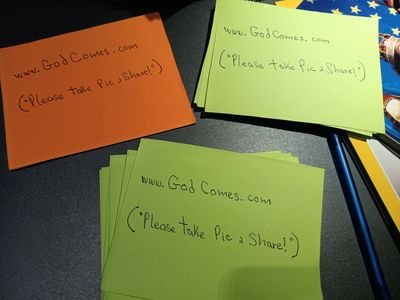 www.GodComes.com
("Please take Pic & Share!")
www.GodComes.com
("Please take Pic & Share!")
www.GodComes.com
("Please take Pic & Share!")